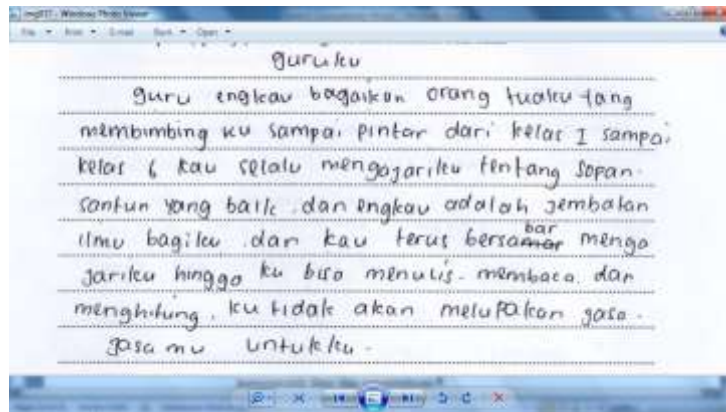 img017 - Windows Photo Viewer
File Print E-mail Burn Open
guruku
guru engkau bagaikan orang tuaku yang
membimbing ku sampai pintar dari kelas I sampai
kelas 6 kau selalu mengajariku tentang sopan
santun yang baik. dan engkau adalah jembatan
ilmu bagiku. dan kau terus bersamar bar menga
jariku hingga ku bisa menulis. membaca. dan
menghitung. ku tidak akan melupakan jasa-
jasa mu untukku.